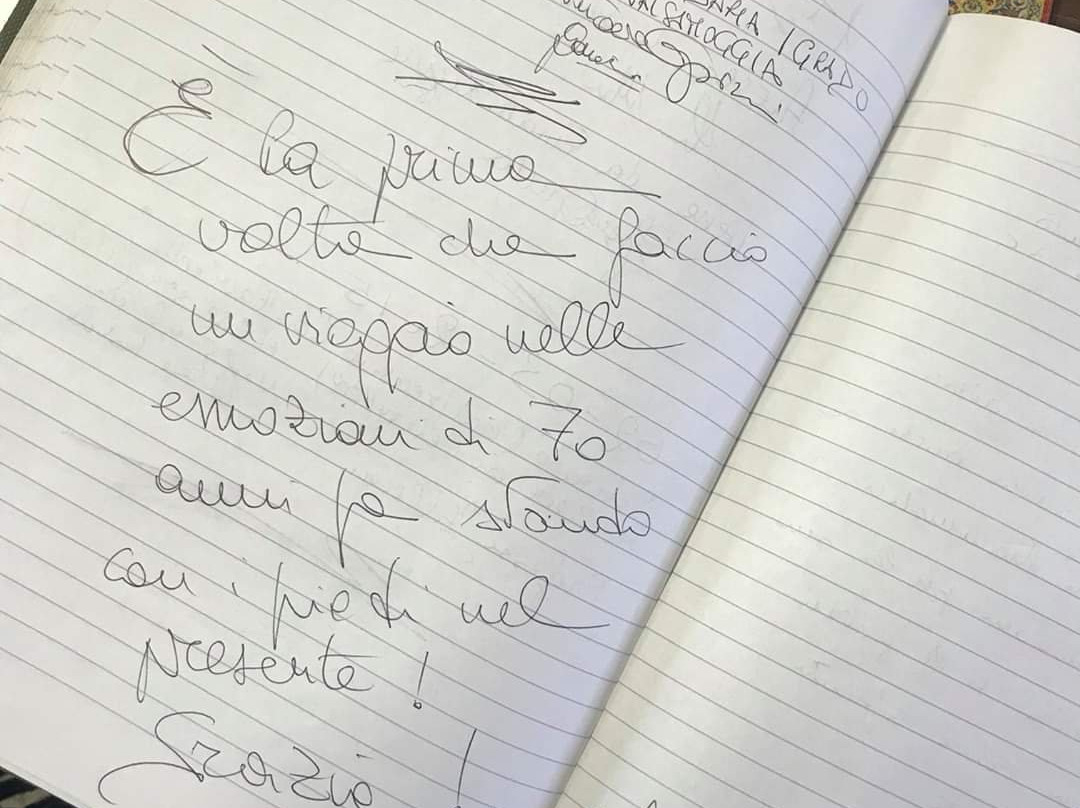 I GRADO
VALSAMOGGIA
È la prima
volta che faccio
un viaggio nelle
emozioni di 70
anni fa stando
con i piedi nel
presente!
Grazie!